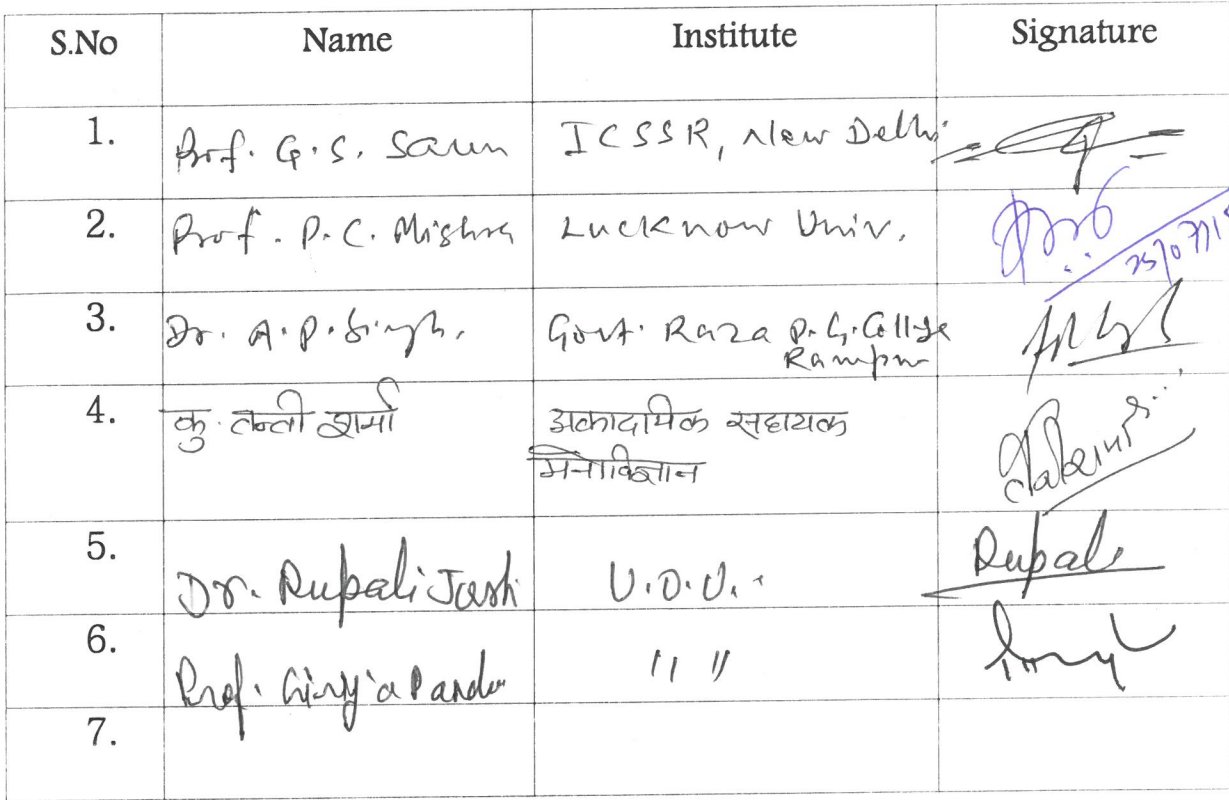 S.No Name Institute Signature
1. Prof. G.S. Saun ICSSR, New Delhi
2. Prof. P.C. Mishra Lucknow Univ.
3. Dr. A.P. Singh. Govt. Raza P.G. College
Rampur
4. कु. तन्वी शर्मा अकादमिक सहायक
मनोविज्ञान
5. Dr. Rupali Joshi U.O.U. Rupali
6. Prof. Girija Pande " "
7.